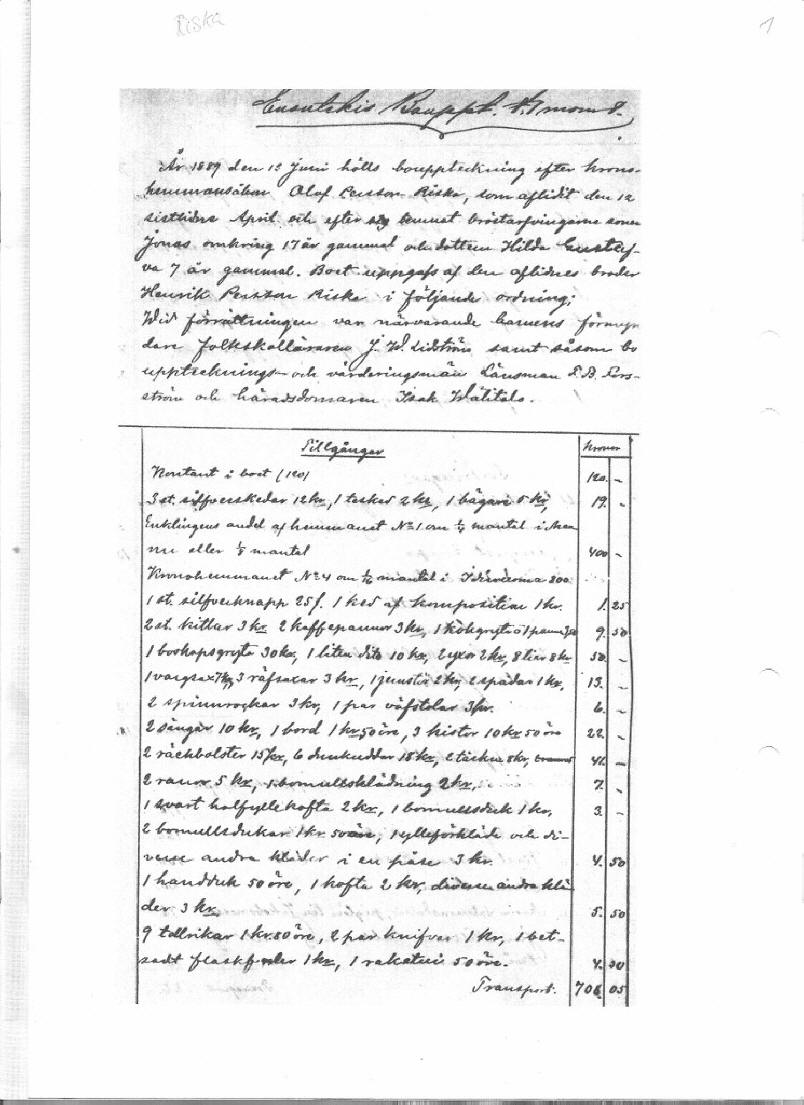 Riska
1
Enontekis Bouppt.
År 1889 den 12 Juni hölls bouppteckning efter krono-
hemmansåboen Olof Persson Riska, som aflidit den 12
sistlidne April och efter sig lemnat bröstarfvingarne sonen
Jonas omkring 17 år gammal och dottren Hilda Gustaf-
va 7 år gammal. Boet uppgafs af den aflidnes broder
Henrik Persson Riska i följande ordning;
Wid förrättningen var närvarande barnens förmyn
dare folkskolläraren J. W. Lidström samt såsom bo
upptecknings- och värderingsmän Länsman F. B. Fors-
ström och häradsdomaren Isak Wälitalo.
Tillgångar
Kronor
Kontant i boet (120) 120. -
3 st. silfverskedar 12 kr, 1 tesked 2 kr, 1 bägare 5 kr, 19. -
Enklingens andel af hemmanet No 1 om 1/4 mantal i
eller 1/8 mantal 400 -
Kronohemmanet No 4 om mantal i Idivuoma 300
1 st. silfverknapp 25 f. 1 ked af komposition 1 kr. 1. 25
2 st. kittlar 3 kr 2 kaffepannor 3 kr, 1 kokgryta o 1 panna 9. 50
1 boskapsgryta 30 kr, 1 liten dito 10 kr, 2 yxor 2 kr, 8 8 kr 50. -
1 vargsax 7 kr, 3 räfsaxar 3 kr, 2 kr, 2 spadar 1 kr, 13. -
2 spinnrockar 3 kr, 1 par väfstolar 3 kr. 6. -
2 sängar 10 kr, 1 bord 1 kr 50 öre, 3 kistor 10 kr 50 öre 22. -
2 bolster 15 kr, 6 dunkuddar 18 kr, 2 täcken 8 kr, 41 -
2 ranor 5 kr, 1 bomullsklädning 2 kr, 7. -
1 svart halfyllekofta 2 kr, 1 bomullsduk 1 kr, 3. -
2 bomullsdukar 1 kr 50 öre, 1 ylleförkläde och di-
verse andra kläder i en påse 3 kr. 4. 50
1 handduk 50 öre, 1 kofta 2 kr, diverse andra klä
der 3 kr. 5. 50
9 tallrikar 1 kr. 80 öre, 2 par knifvar 1 kr, 1 bet-
sadt flaskfoder 1 kr, 1 50 öre. 4.
Transport. 706 05